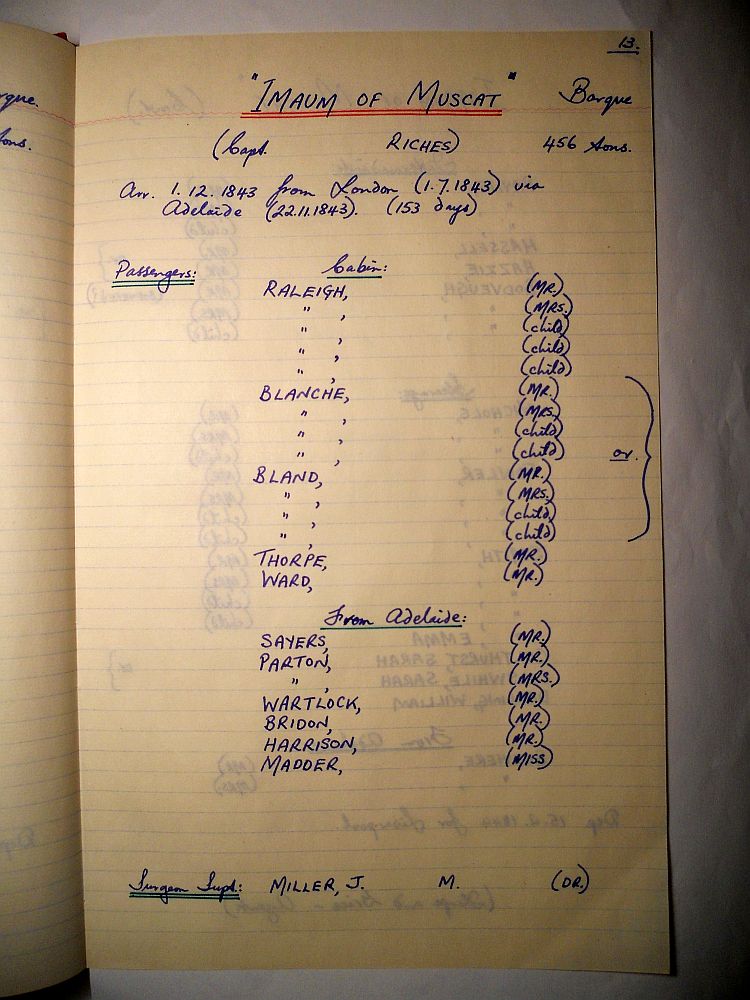 13.
"IMAUM OF MUSCAT" Barque
(Capt. RICHES) 456 tons.
Arr. 1.12.1843 from London (1.7.1843) via
Adelaide (22.11.1843). (153 days)
Passengers: Cabin:
RALEIGH, (MR.)
" , (MRS.)
" , (child)
" , (child)
" , (child)
BLANCHE, (MR.)
" , (MRS.)
" , (child)
" , (child)
or.
BLAND, (MR.)
" , (MRS.)
" , (child)
" , (child)
THORPE, (MR.)
WARD, (MR.)
From Adelaide:
SAYERS, (MR.)
PARTON, (MR.)
" , (MRS.)
WARTLOCK, (MR.)
BRIDON, (MR.)
HARRISON, (MR.)
MADDER, (MISS)
Surgeon Supt: MILLER, J. M. (DR.)